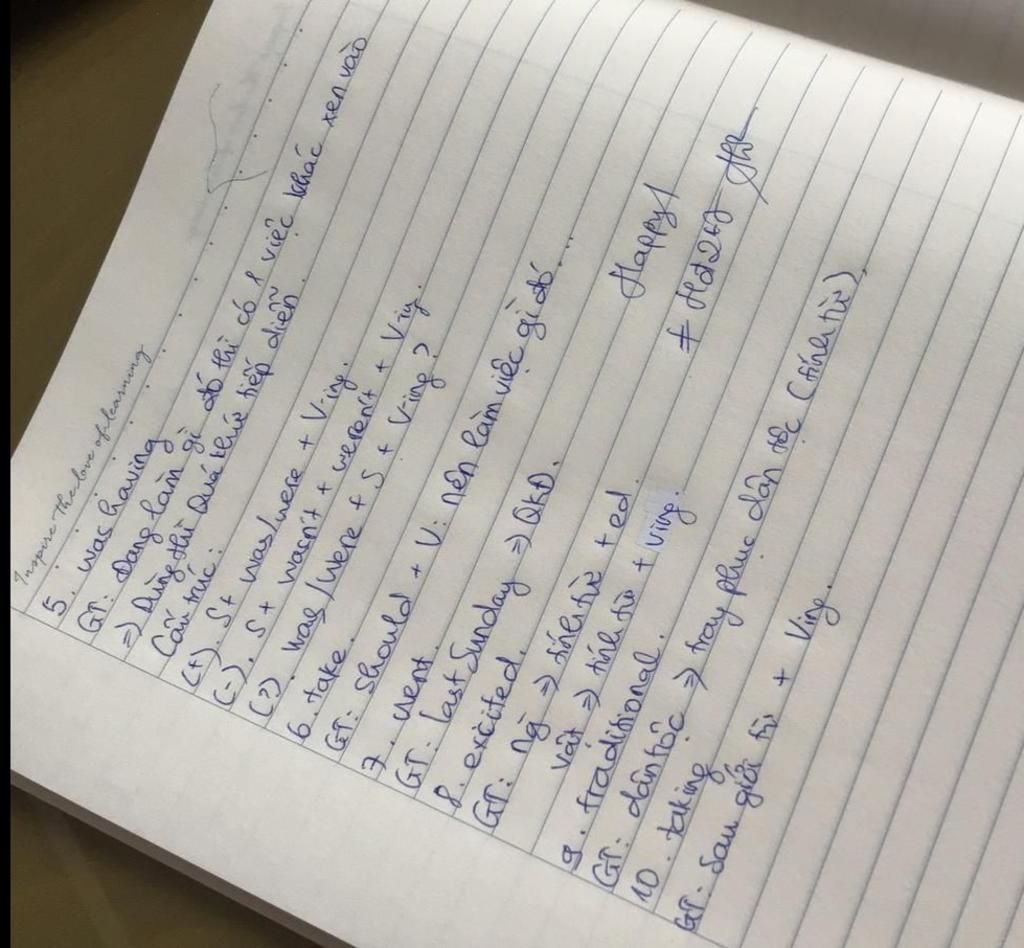 Inspire the love of learning
5. was having
GT: Đang làm gì đó thì có 1 việc khác xen vào
=> Dùng thì Quá khứ tiếp diễn.
Cấu trúc:
(+). S + was/were + V-ing.
(-). S + wasn't + weren't + Ving.
(?) was/were + S + Ving?
6. take.
GT: Should + V: nên làm việc gì đó...
7. went.
GT: last Sunday => QKĐ.
8. excited.
GT: ng => tính từ + ed.
vật => tính từ + ving.
Happy!
9. traditional.
GT: dân tộc => trang phục dân tộc (tính từ)
10. taking
GT: Sau giới từ + Ving.